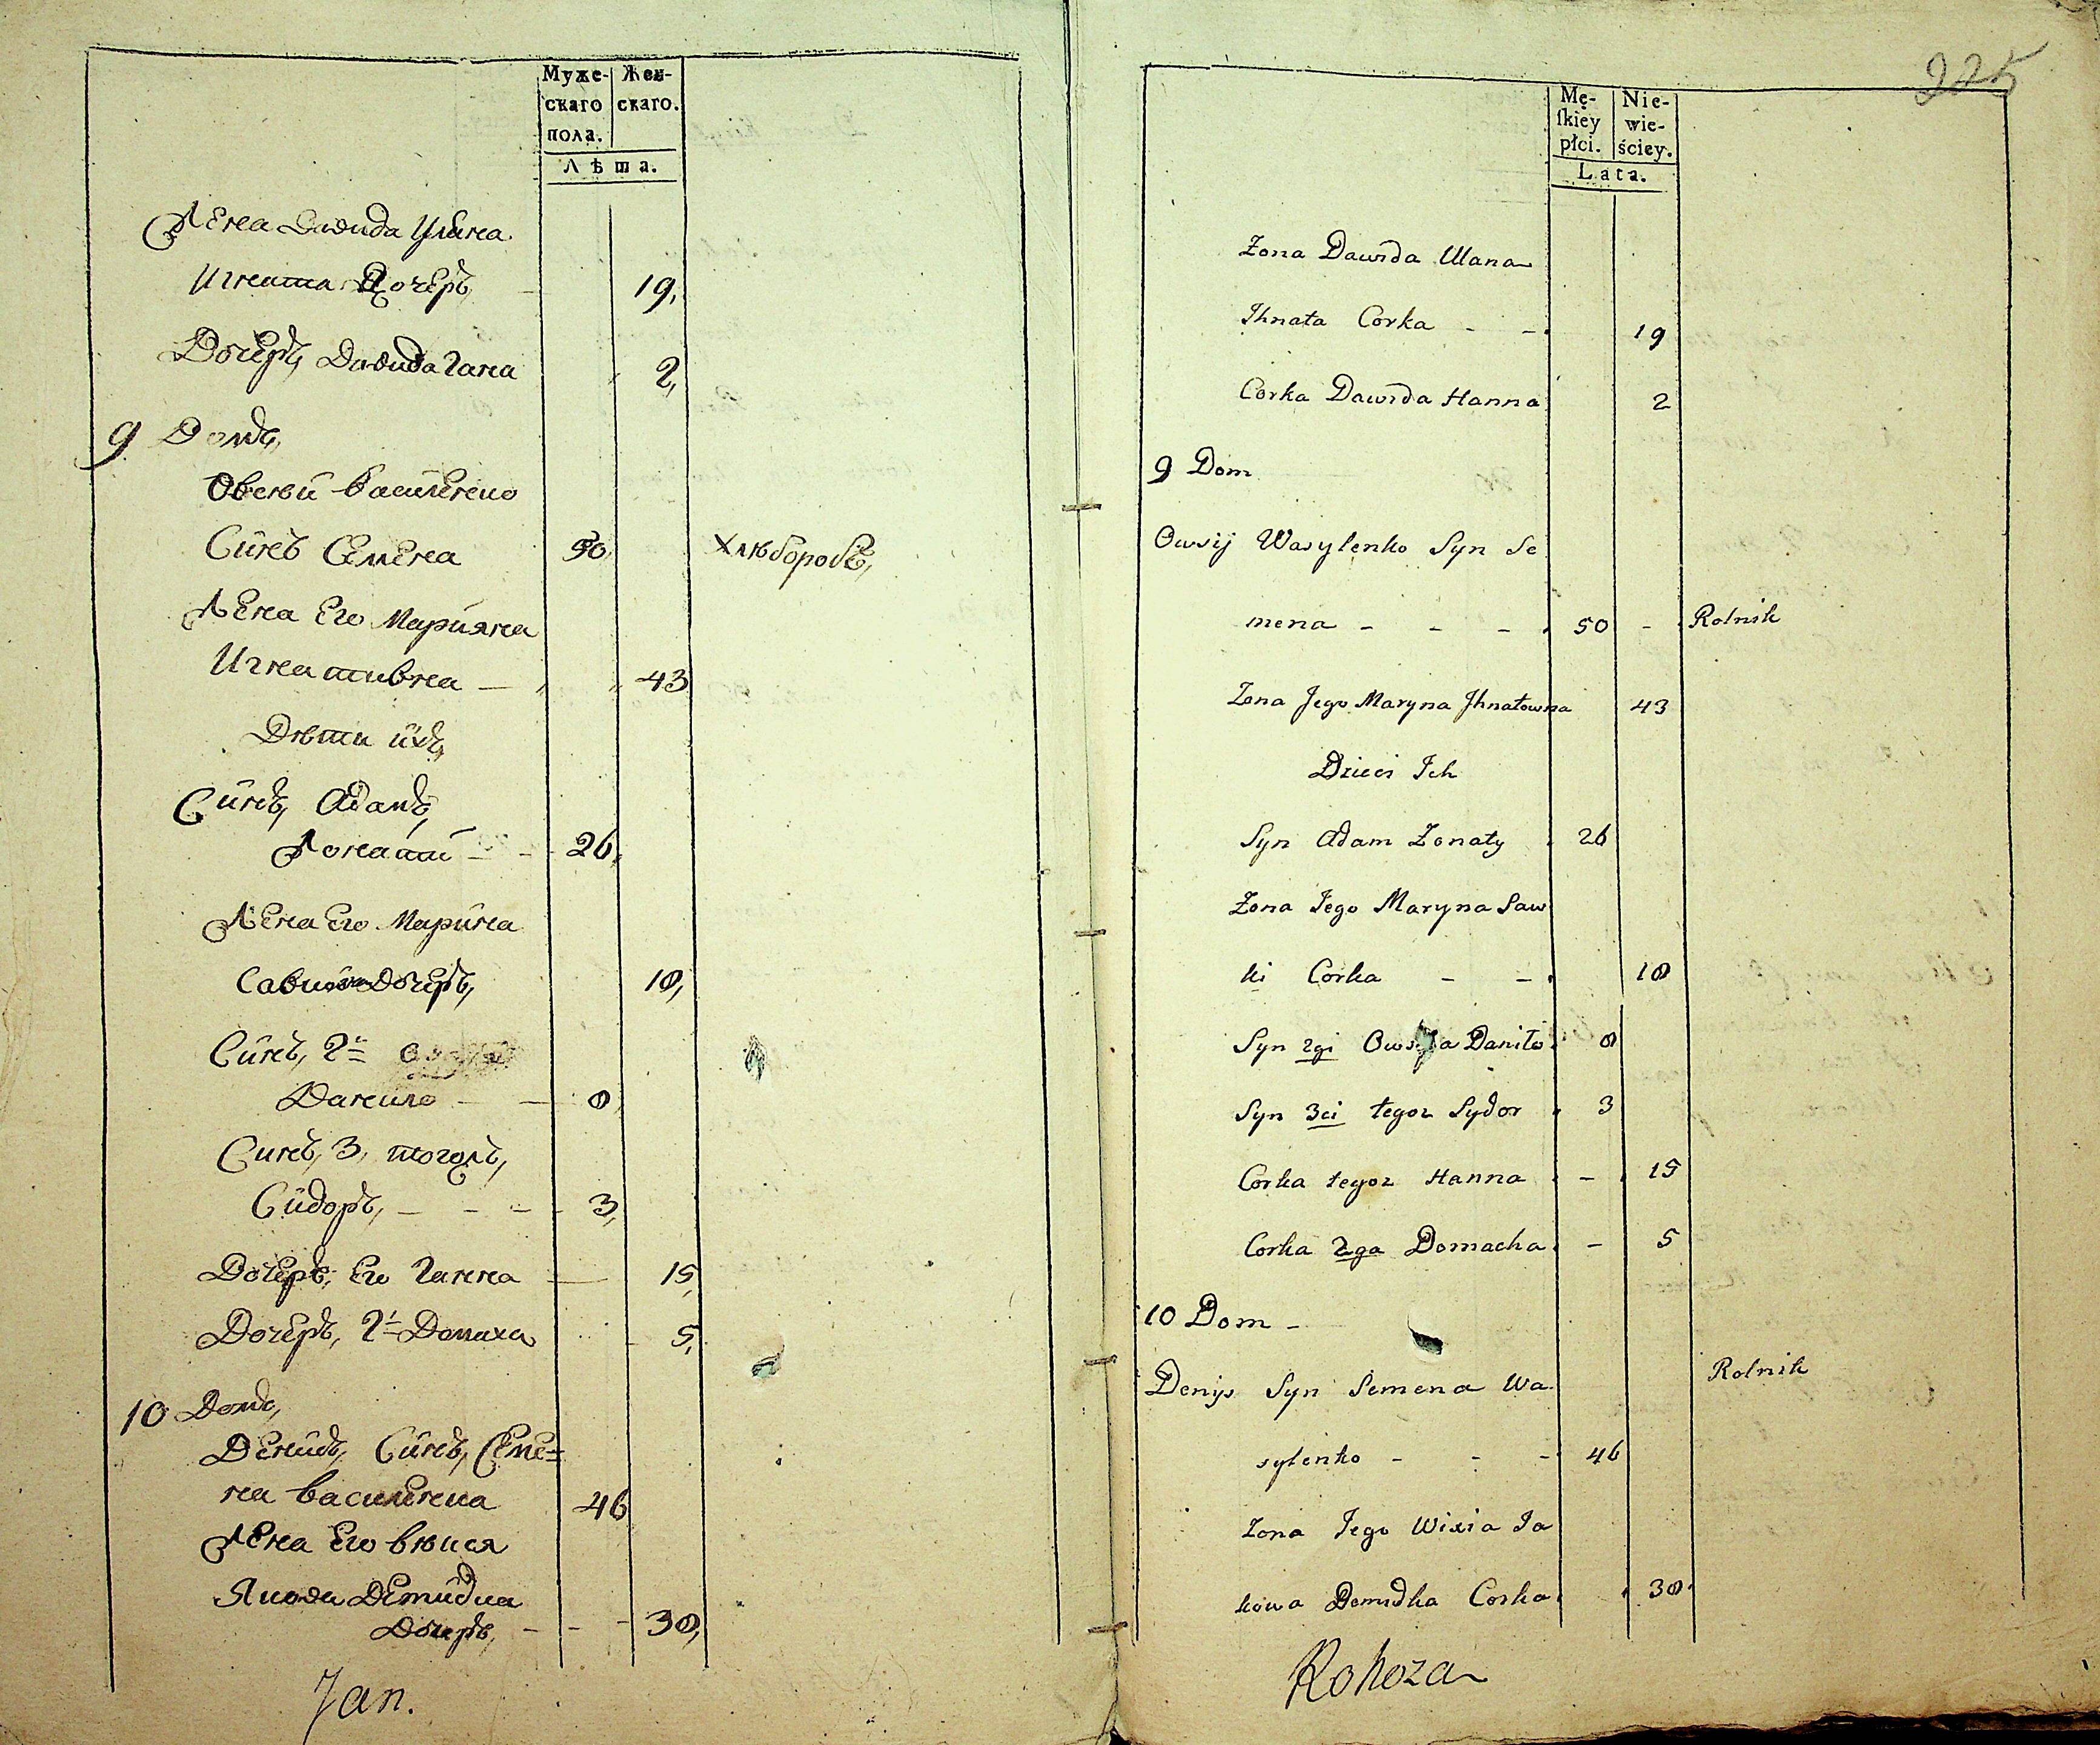 Муже- Жен-
скаго скаго.
пола.
Лѣта.
Жена Давида Уляна
Игната Дочеръ, 19,
Дочеръ, Давида Ганна 2,
9 Домъ,
Овсѣй Василенко
Синъ Семена 50, Хлѣборобъ,
Жена Его Марияна
Игнативна — 43
Дѣти ихъ,
Синъ, Адамъ,
Жонатий - - 26,
Жена Его Марина
Савки Дочеръ, 18,
Синъ, 2й
Данило - - 8
Синъ, 3, тогожъ,
Сидоръ, - - - 3,
Дочеръ, Его Ганна — 15,
Дочеръ, 2я Домаха 5,
10 Домъ,
Денисъ, Синъ, Семе=
на Василенка 46
Жена Его Вѣкся
Якова Демидка
Дочеръ, - - - 38,
Jan.
225
Mę- Nie-
ſkiey wie-
płci. ściey.
Lata.
Żona Dawida Ulana
Ihnata Corka - - 19
Corka Dawida Hanna 2
9 Dom
Owsij Wasylenko Syn Se
mena - - - 50 - Rolnik
Żona Jego Maryna Jhnatowna 43
Dzieci Ich
Syn Adam Żonaty 26
Żona Iego Maryna Saw
ki Corka - - 18
Syn 2gi Owsija Daniło 8
Syn 3ci tegoz Sydor 3
Corka tegoz Hanna - 15
Corka 2ga Domacha - 5
10 Dom -
Denys Syn Semena Wa Rolnik
sylenko - - - 46
Żona Iego Wixia Ia
kowa Demidka Corka 38
Rohoza